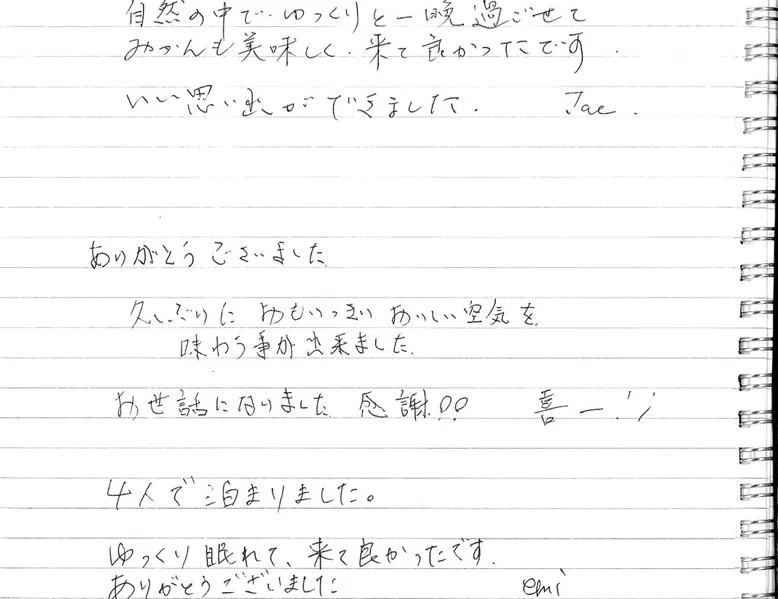 自然の中で、ゆっくりと一晩過ごせて
みかんも美味しく、来て良かったです.
いい思い出ができました. Jae.
ありがとうございました
久しぶりに おもいっきり おいしい空気を
味わう事が出来ました.
お世話になりました 感謝!! 喜一
4人で泊まりました。
ゆっくり眠れて、来て良かったです.
ありがとうございました emi